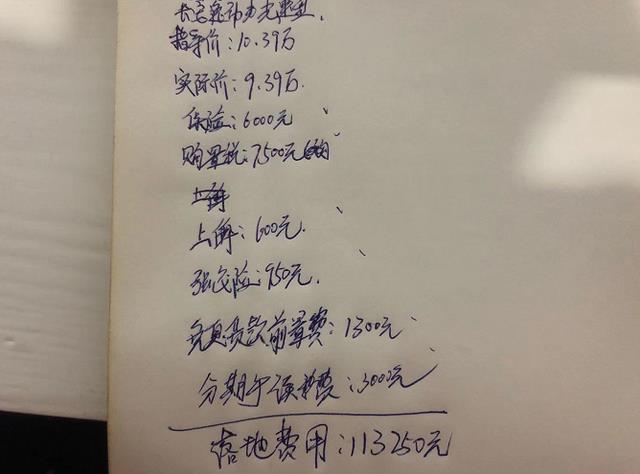 指导价:10.39万
实际价:9.39万.
保险:6000元
购置税:7500元
上牌
上牌:600元.
强交险:950元.
免息贷款前置费:1300元
分期手续费:3000元
落地费用:113250元